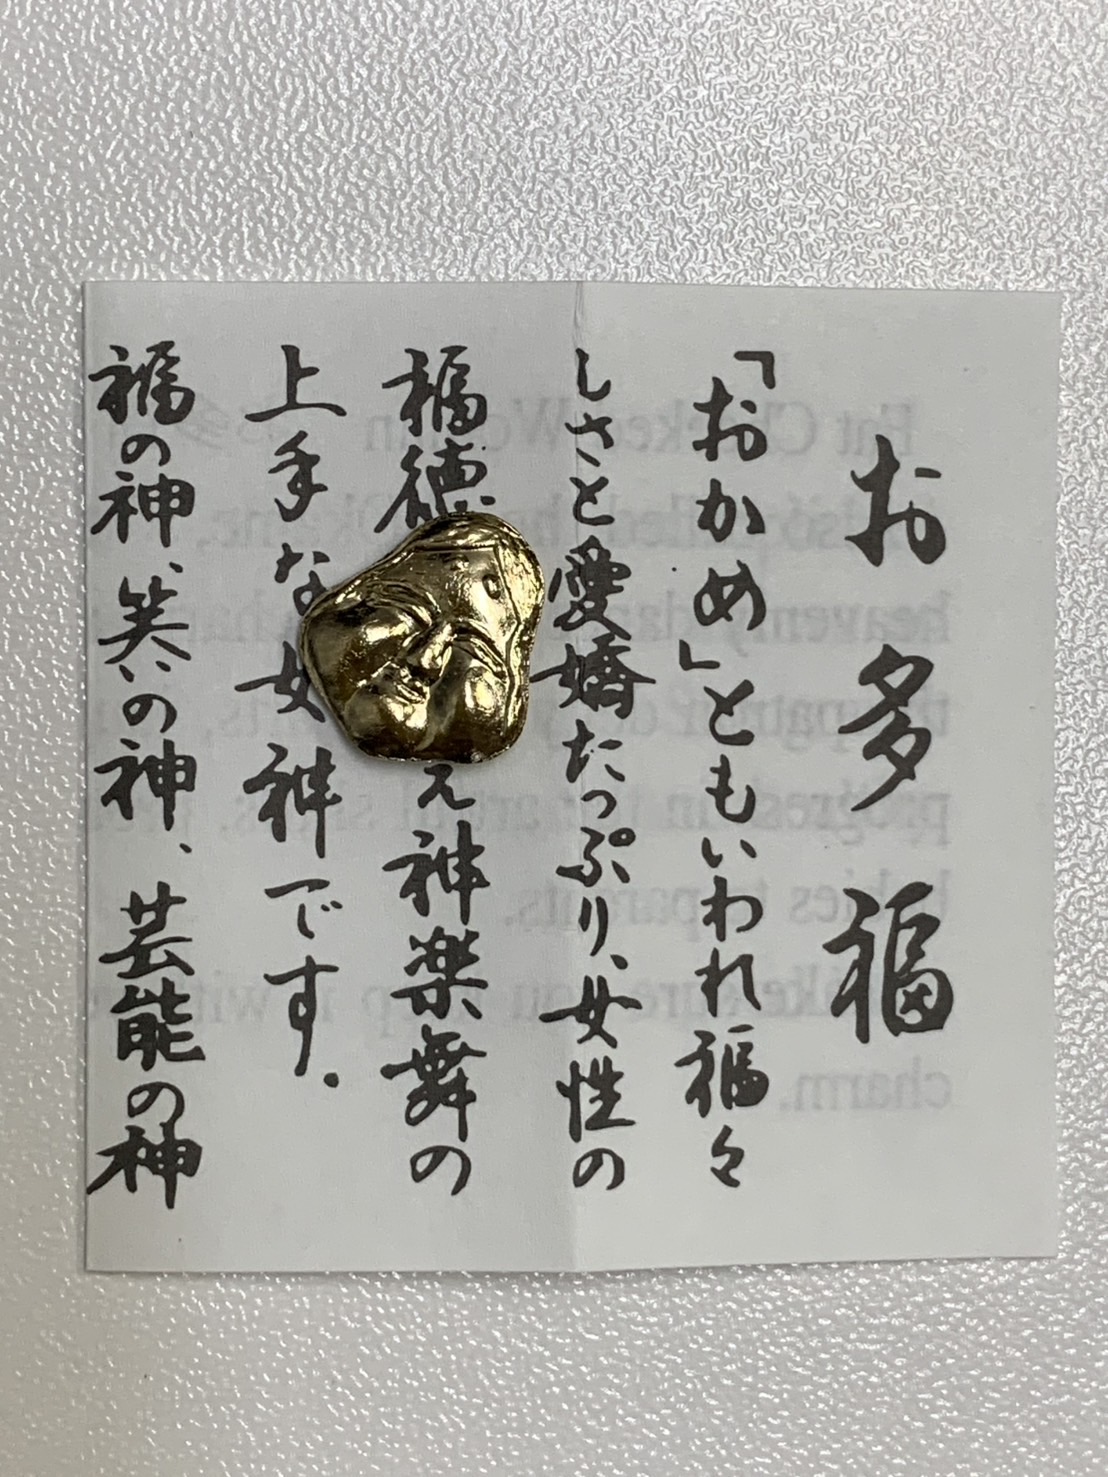 お多福
「おかめ」ともいわれ福々
しさと愛嬌たっぷり、女性の
福徳 え神楽舞の
上手な女神です。
福の神、笑いの神、芸能の神